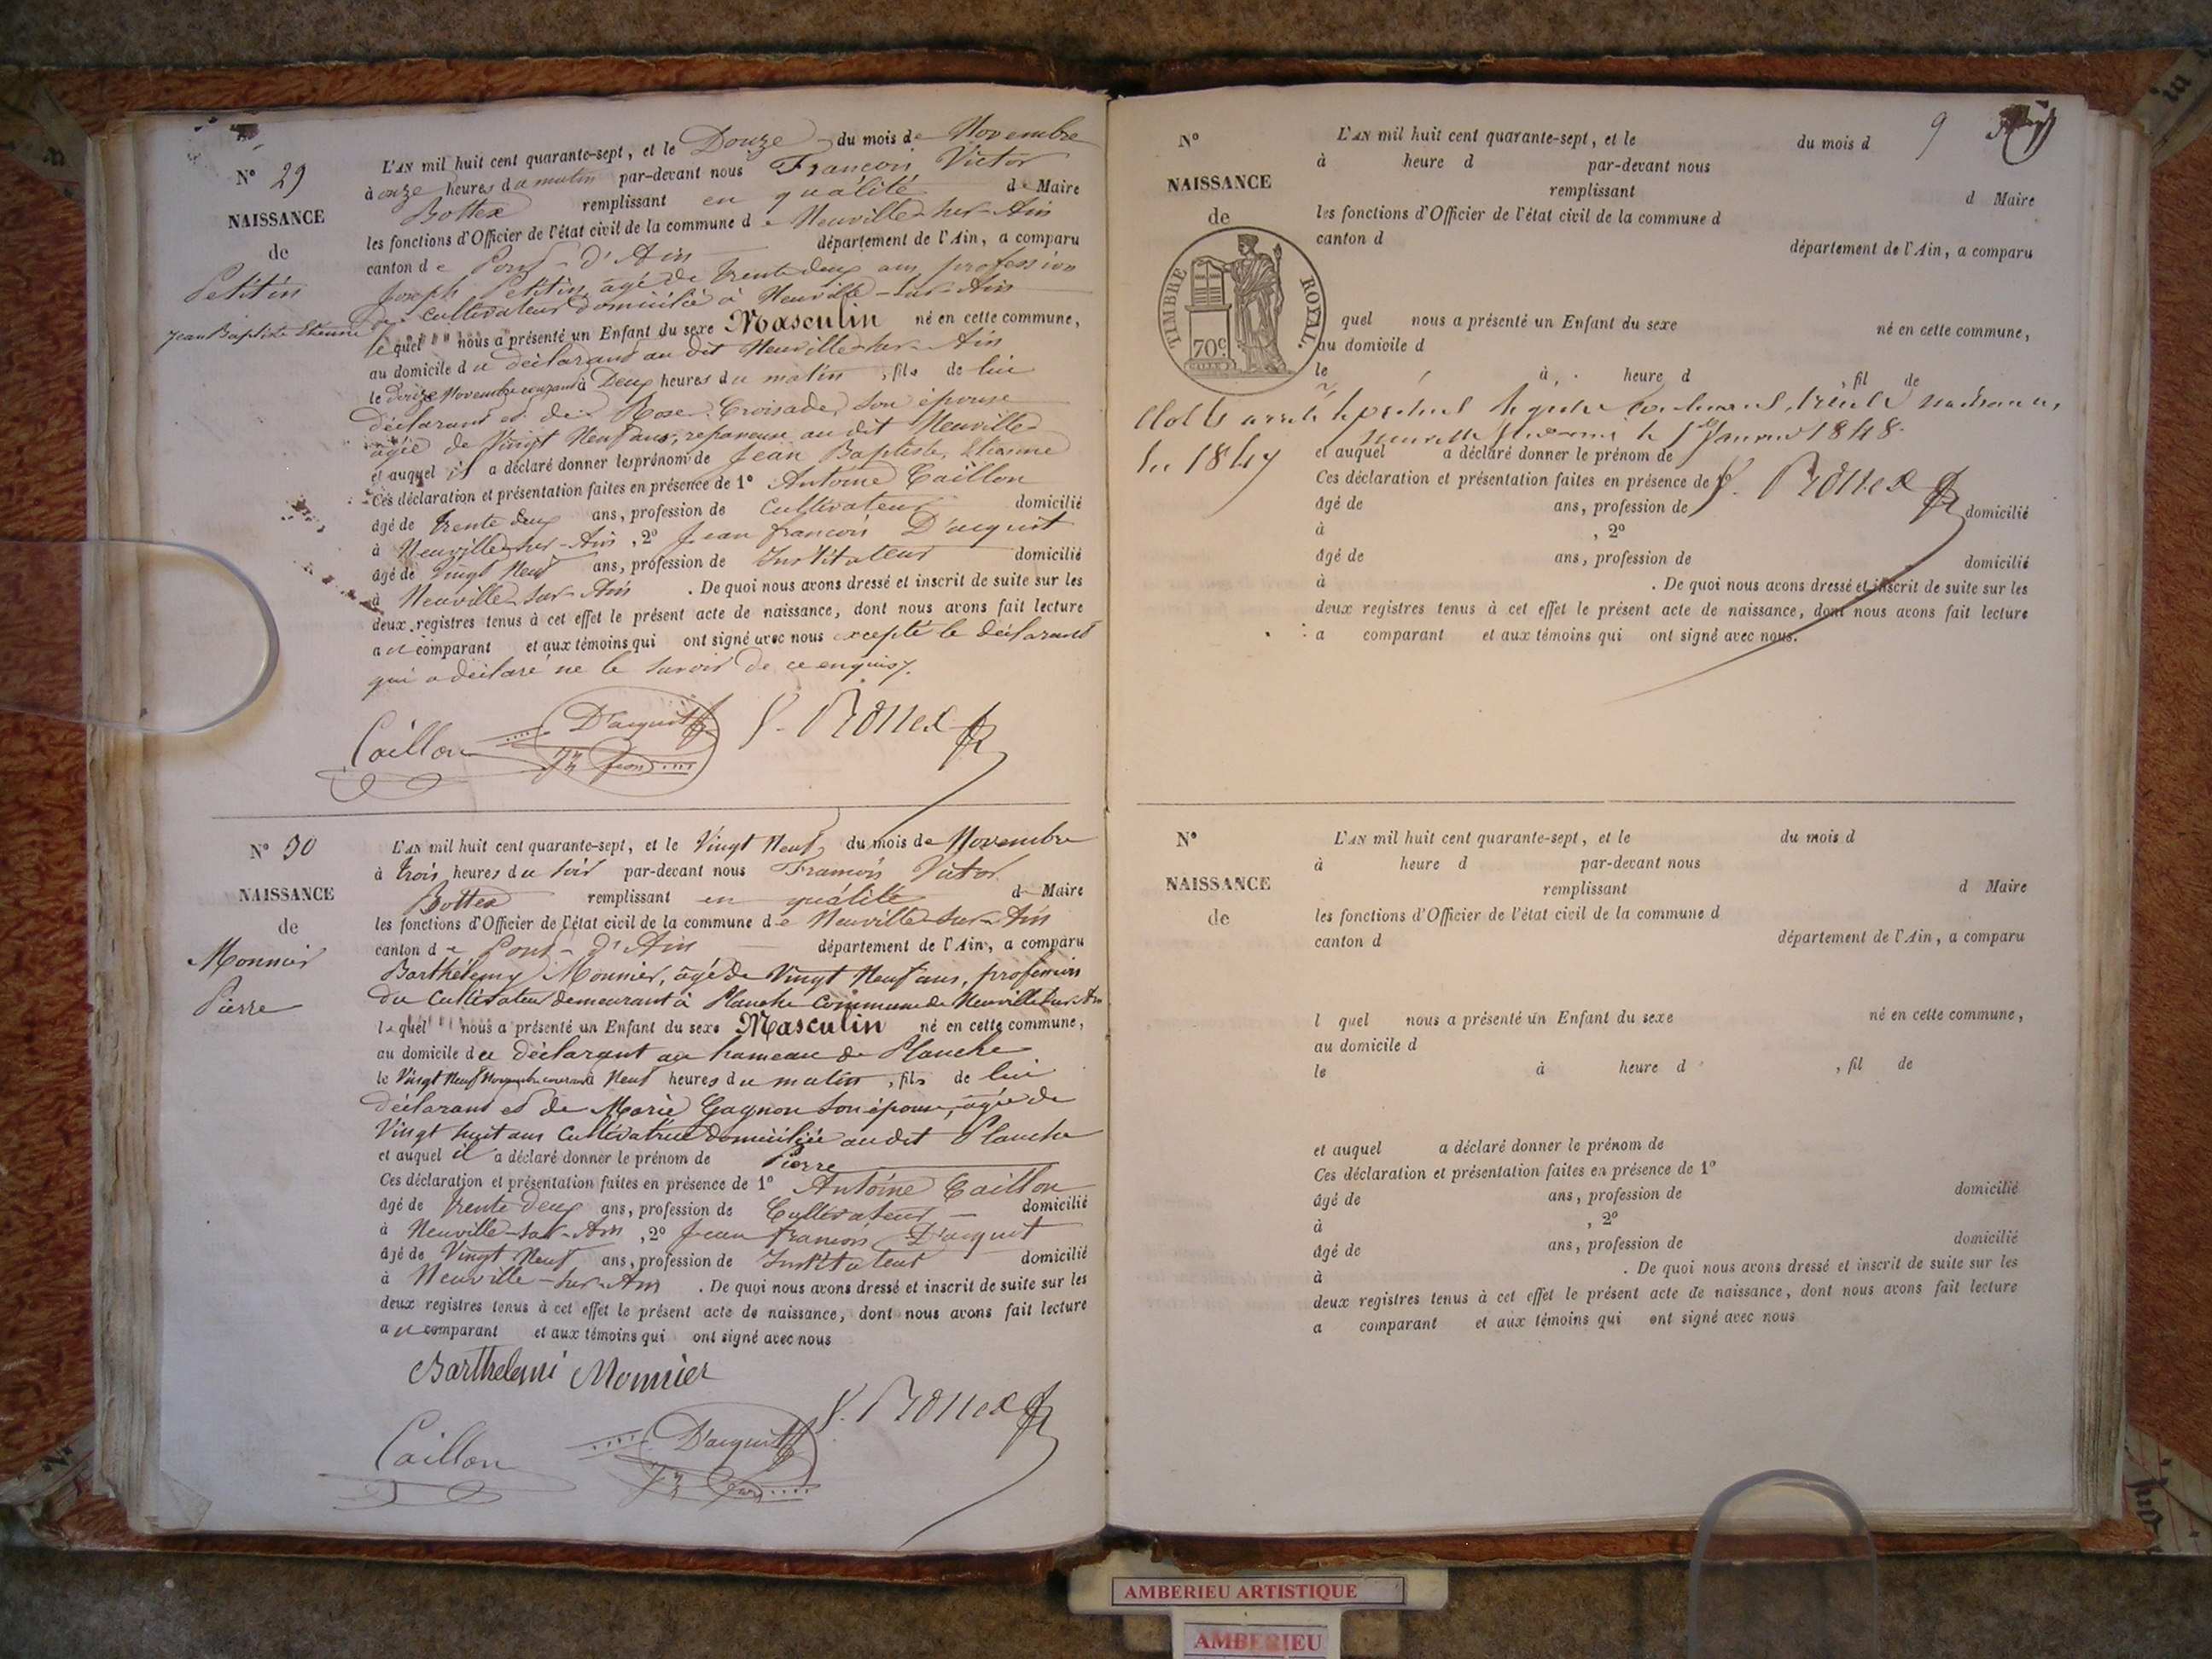 N° 29
NAISSANCE
de
Petitin
Jean Baptiste Etienne
L'AN mil huit cent quarante-sept, et le Douze du mois de Novembre
à onze heures du matin par-devant nous François Victor
Bottex remplissant en qualité de Maire
les fonctions d'Officier de l'état civil de la commune de Neuville-sur-Ain
canton de Pont-d'Ain département de l'Ain, a comparu
Joseph Petitin âgé de trente deux ans profession
de cultivateur domicilié à Neuville-sur-Ain
lequel nous a présenté un Enfant du sexe Masculin né en cette commune,
au domicile du déclarant au dit Neuville-sur-Ain
le douze Novembre courant à Deux heures du matin, fils de lui
déclarant et de Rose Croisade, son épouse
agée de Vingt Neuf ans, au dit Neuville
et auquel il a déclaré donner les prénom de Jean Baptiste, Etienne
Ces déclaration et présentation faites en présence de 1° Antoine Caillon
âgé de trente deux ans, profession de Cultivateur domicilié
à Neuville-sur-Ain, 2° Jean françois D'acquit
âgé de Vingt Neuf ans, profession de Instituteur domicilié
à Neuville-sur-Ain. De quoi nous avons dressé et inscrit de suite sur les
deux registres tenus à cet effet le présent acte de naissance, dont nous avons fait lecture
au comparant et aux témoins qui ont signé avec nous excepté le déclarant
qui a déclaré ne le savoir de ce enquis
Caillon D'acquit V. Bottex
N° 30
NAISSANCE
de
Monnier
Pierre
L'AN mil huit cent quarante-sept, et le Vingt Neuf du mois de Novembre
à trois heures du soir par-devant nous François Victor
Bottex remplissant en qualité de Maire
les fonctions d'Officier de l'état civil de la commune de Neuville-sur-Ain
canton de Pont-d'Ain département de l'Ain, a comparu
Barthélemy Monnier, âgé de Vingt Neuf ans, profession
de Cultivateur demeurant à Planche commune de Neuville sur Ain
lequel nous a présenté un Enfant du sexe Masculin né en cette commune,
au domicile du déclarant au hameau de Planche
le Vingt Neuf Novembre courant à Neuf heures du matin, fils de lui
déclarant et de Marie Gagnon son épouse, agée de
Vingt huit ans Cultivatrice domiciliée au dit Planche
et auquel il a déclaré donner le prénom de Pierre
Ces déclaration et présentation faites en présence de 1° Antoine Caillon
âgé de trente deux ans, profession de Cultivateur domicilié
à Neuville-sur-Ain, 2° Jean françois D'acquit
âgé de Vingt Neuf ans, profession de Instituteur domicilié
à Neuville-sur-Ain. De quoi nous avons dressé et inscrit de suite sur les
deux registres tenus à cet effet le présent acte de naissance, dont nous avons fait lecture
au comparant et aux témoins qui ont signé avec nous
Barthelemi Monnier
Caillon D'acquit V. Bottex
9
N°
NAISSANCE
de
TIMBRE ROYAL.
70c
L'AN mil huit cent quarante-sept, et le du mois d
à heure d par-devant nous
remplissant d Maire
les fonctions d'Officier de l'état civil de la commune d
canton d département de l'Ain, a comparu
quel nous a présenté un Enfant du sexe né en cette commune,
au domicile d
le à heure d, fil de
Clos et arrêté le présent registre contenant trente naissances
le 1er Janvier 1848.
1847
et auquel a déclaré donner le prénom de
Ces déclaration et présentation faites en présence de
V. Bottex
âgé de ans, profession de domicilié
à , 2°
âgé de ans, profession de domicilié
à . De quoi nous avons dressé et inscrit de suite sur les
deux registres tenus à cet effet le présent acte de naissance, dont nous avons fait lecture
a comparant et aux témoins qui ont signé avec nous.
N°
NAISSANCE
de
L'AN mil huit cent quarante-sept, et le du mois d
à heure d par-devant nous
remplissant d Maire
les fonctions d'Officier de l'état civil de la commune d
canton d département de l'Ain, a comparu
l quel nous a présenté un Enfant du sexe né en cette commune,
au domicile d
le à heure d , fil de
et auquel a déclaré donner le prénom de
Ces déclaration et présentation faites en présence de 1°
âgé de ans, profession de domicilié
à , 2°
âgé de ans, profession de domicilié
à . De quoi nous avons dressé et inscrit de suite sur les
deux registres tenus à cet effet le présent acte de naissance, dont nous avons fait lecture
a comparant et aux témoins qui ont signé avec nous
AMBERIEU ARTISTIQUE
AMBERIEU